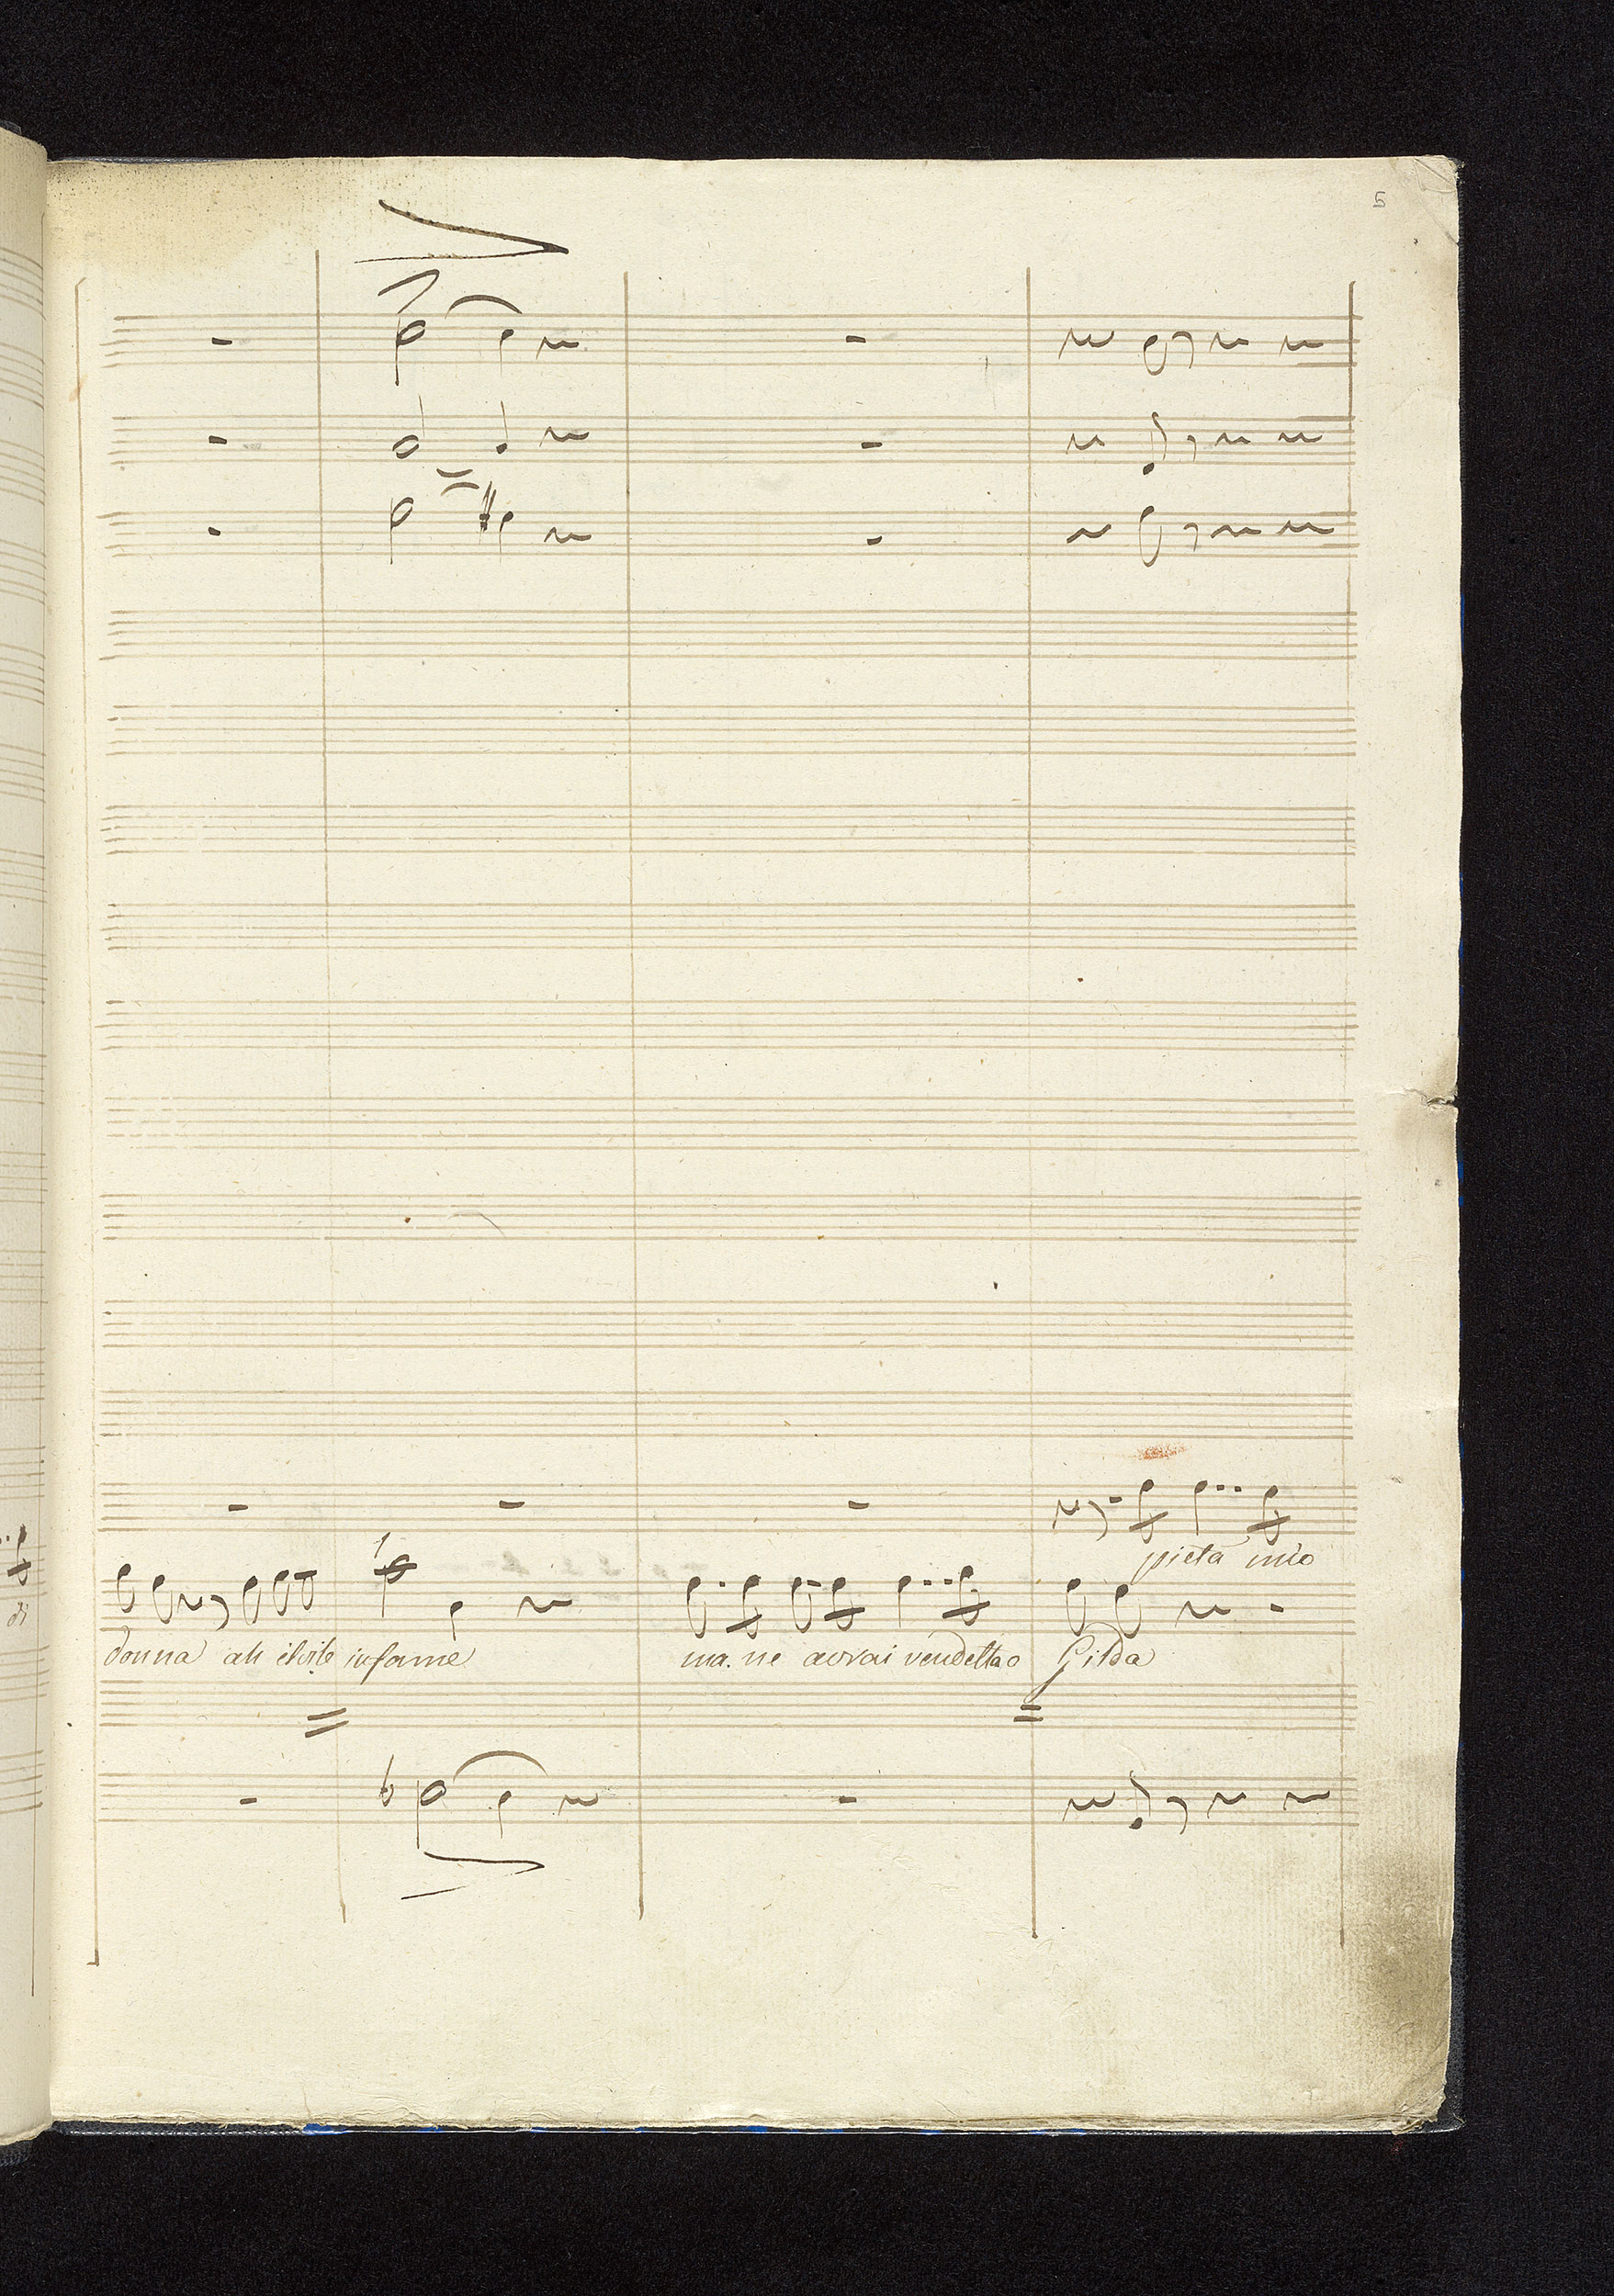 5
pietà mio
di
donna ah il vile infame ma. ne avrai vendetta o Gilda